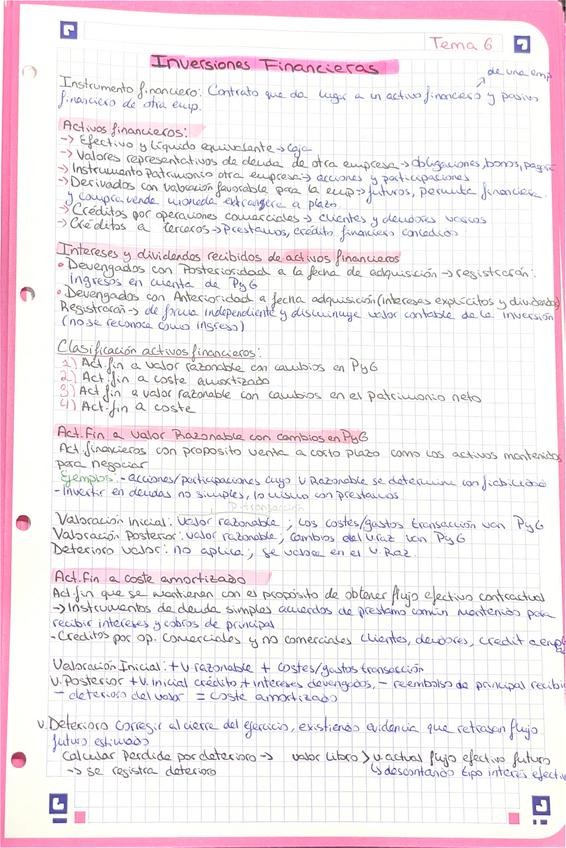 Tema 6
Inversiones Financieras
de una emp
Instrumento financiero: Contrato que da lugar a un activo financiero y pasivo
financiero de otra emp.
Activos financieros:
-> Efectivo y líquido equivalente -> Caja
-> Valores representativos de deuda de otra empresa -> obligaciones, bonos, pagré
-> Instrumento Patrimonio otra empresa -> acciones y participaciones
-> Derivados con valoración favorable para la emp -> futuros, permuta financiera
y compraventa moneda extranjera a plazo
-> Créditos por operaciones comerciales -> clientes y deudores varios
-> Créditos a terceros -> Prestamos, crédito financiero concedidos
Intereses y dividendos recibidos de activos financieros
• Devengados con Posterioridad a la fecha de adquisición -> registrarán:
ingresos en cuenta de PyG
• Devengados con Anterioridad a fecha adquisición (intereses explícitos y dividendos)
Registrarán -> de forma independiente y disminuye valor contable de la inversión
(no se reconoce como ingreso)
Clasificación activos financieros:
1) Act fin a valor razonable con cambios en PyG
2) Act. fin a coste amortizado
3) Act. fin a valor razonable con cambios en el patrimonio neto
4) Act. fin a coste
Act. Fin a valor Razonable con cambios en PyG
Act. financieros con proposito venta a corto plazo como los activos mantenidos
para negociar
Ejemplos - acciones/participaciones cuyo v Razonable se determine con fiabilidad
- Invertir en deudas no simples, lo mismo con prestamos
Valoración Inicial: valor razonable, los costes/gastos transacción van PyG
Valoración Posterior: valor razonable, cambios del v raz van PyG
Deterioro valor: no aplica, se valora en el V. Raz.
Act. fin a coste amortizado
Act fin que se mantienen con el propósito de obtener flujo efectivo contractual
-> Instrumentos de deuda simples acuerdos de prestamo común mantenido para
recibir intereses y cobros de principal
- Creditos por op. comerciales y no comerciales clientes, deudores, credit a emp
Valoración Inicial: + V razonable + costes/gastos transacción
V. Posterior + v. inicial crédito, + intereses devengados, - reembolso de principal recibi
- deterioro del valor = coste amortizado
V. Deterioro corregir al cierre del ejercicio, existiendo evidencia que retrasan flujo
futuro estimado
Calcular perdida por deterioro -> valor libro > v. actual flujo efectivo futuro
-> se registra deterioro
↳ descontando tipo interés efectiv